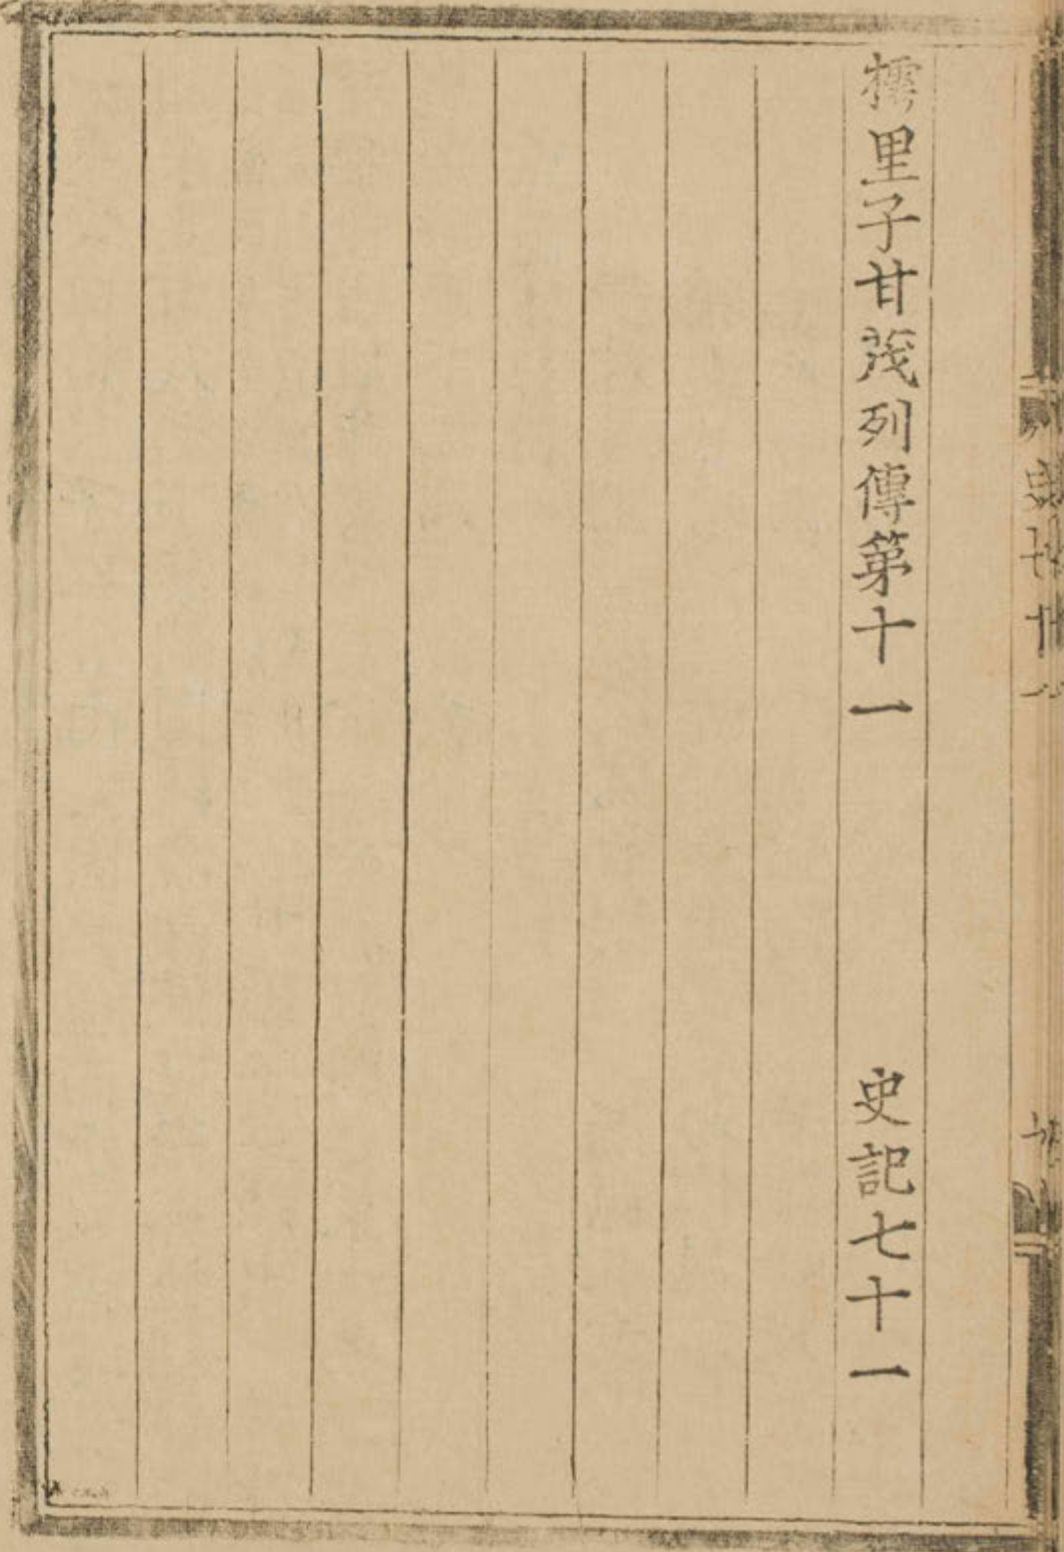 樗里子甘茂列傳第十一 史記七十一